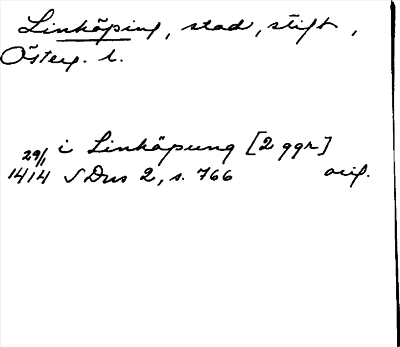 Linköping, stad, stift,
Österg. l.
i Linköpung [2 ggr]
29/1 1414 SDns 2, s. 766 orig.